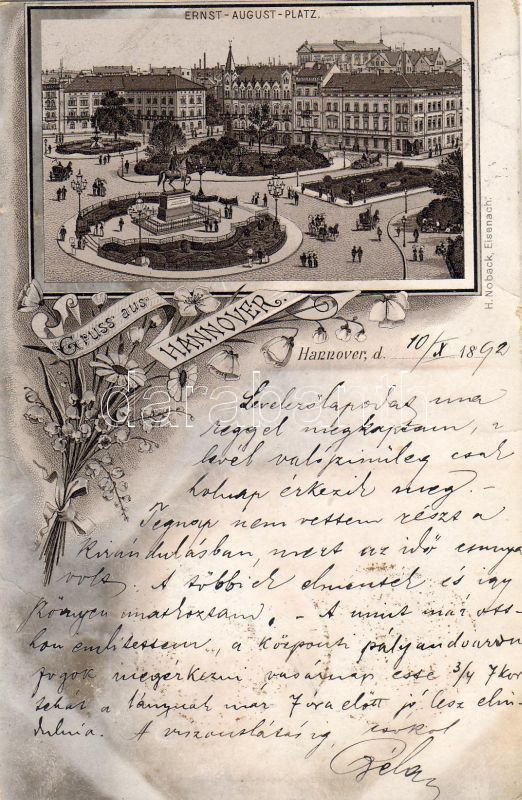 ERNST-AUGUST-PLATZ.
H. Noback, Eisenach.
Gruss aus
HANNOVER.
Hannover, d. 10/X 1892
darabanth
Levelezőlapodat ma
reggel megkaptam, a
levél valószinüleg csak
holnap érkezik meg. -
Tegnap nem vettem részt a
kirándulásban, mert az idő csunya
volt. A többiek elmentek és igy
könyen
mulattam. - A mint már ott
hon emlitettem, a központi pályaudvaron
fogok megérkezni vasárnap este 3/4 7 kor
tehát a már 7 óra előtt jó lesz elin-
dulnia. A viszontlátásig csokol
Béla